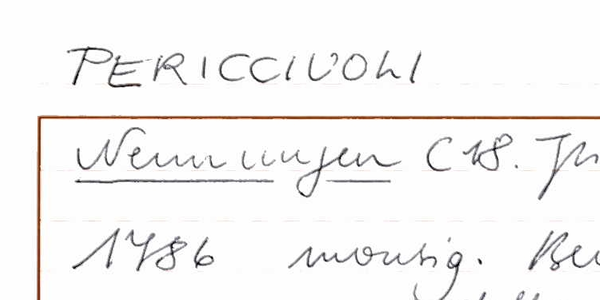 PERICCIUOLI
Nennungen C18. Jh
1786 monsig. Be